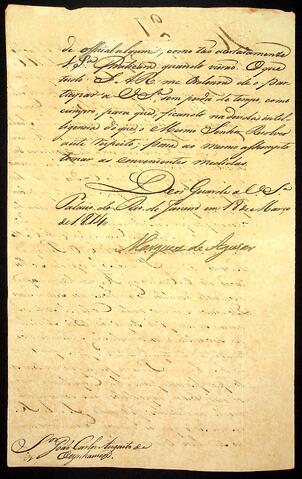 de official algum, como tão acertadamente
A. S.ª Providencia quando virão. O que
tudo S. A. R. me Ordena de o par-
ticipar a V. S.ª sem perda de tempo, como
cumpro, para que, ficando na devida intel-
ligencia do que o Mesmo Senhor Resolveo
a este respeito, possa ao mesmo assumpto
tomar as convenientes medidas.
Deos Guarde a V. S.ª
Palacio do Rio de Janeiro em 18 de Março
de 1814.
Marquez de Aguiar
S.or João Carlos Augusto de
Oeynhausen